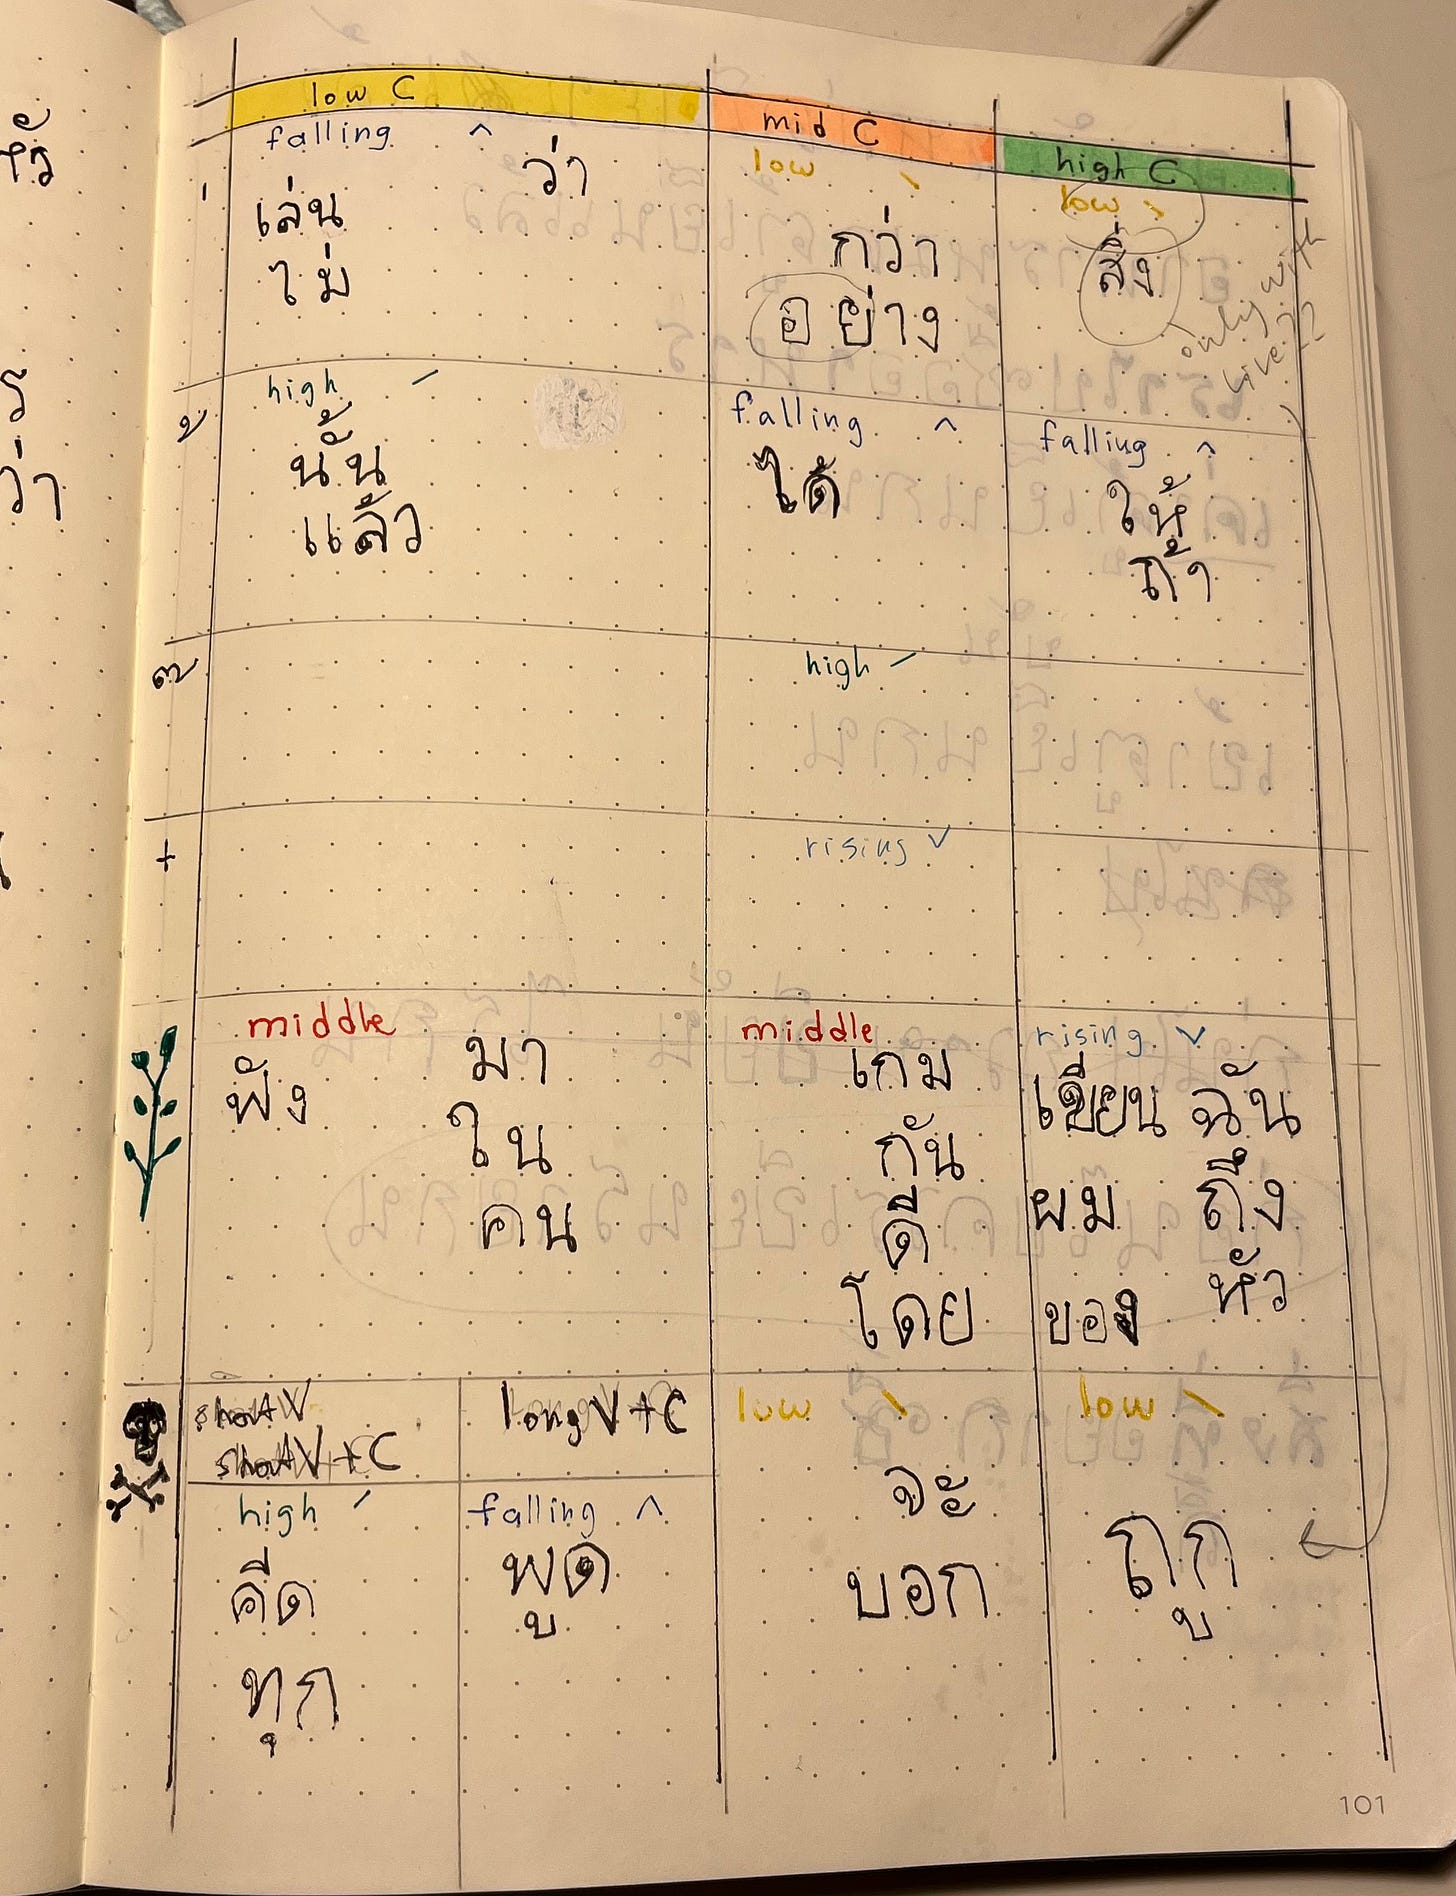 low C
mid C
high C
falling ^
เล่น
ว่า
ไม่
low
กว่า
อย่าง
low
สิ่ง
only with
live??
high
นั้น
แล้ว
falling ^
ได้
falling ^
ให้
ถ้า
high
+
rising
middle
ฟัง
มา
ใน
คน
middle
เกม
กัน
ดี
โดย
rising
เขียน
ฉัน
ผม
ถึง
ของ
หัว
short V
short V + C
long V + C
high
คีด
ทุก
falling ^
พูด
low
จะ
บอก
low
ถูก
ว่า
101